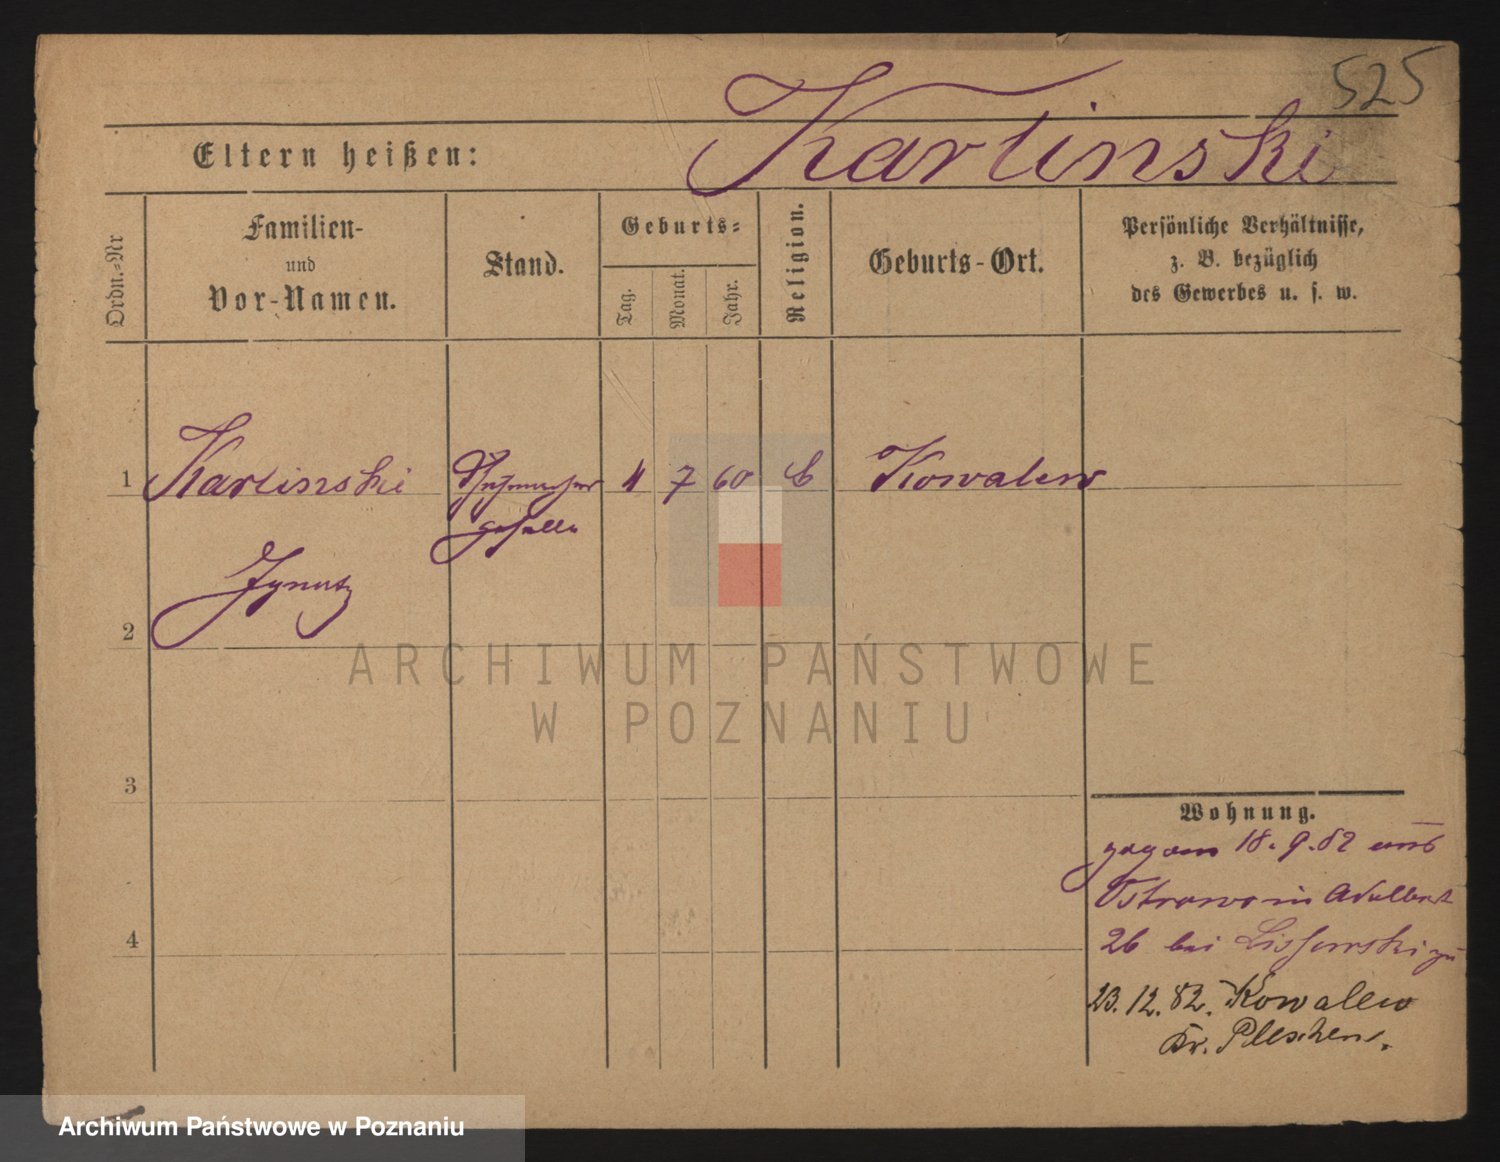 525
Karlinski
Eltern heißen:
Ordn.=Nr
Familien-
und
Vor-Namen.
Stand.
Geburts=
Tag.
Monat.
Jahr.
Religion.
Geburts-Ort.
Persönliche Verhältnisse,
z. B. bezüglich
des Gewerbes u. s. w.
1 Karlinski Schuhmacher 4 7 60 C Kowalew
geselle
Ignatz
2
ARCHIWUM PAŃSTWOWE
W POZNANIU
3
Wohnung.
18. 9. 82 aus
Ostrowo in Adalbert
4
26 bei Lissowski
23. 12. 82. Kowalew
Kr. Pleschen.
Archiwum Państwowe w Poznaniu